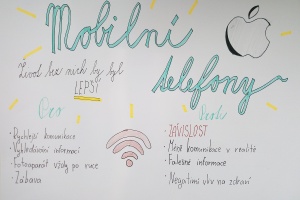 Mobilní
telefony
Život bez nich by byl
LEPŠÍ
Pro
· Rychlejší komunikace
· Vyhledávání informací
· Fotoaparát vždy po ruce
· Zábava
Proti
· ZÁVISLOST
· Méně komunikace v realitě
· Falešné informace
· Negativní vliv na zdraví